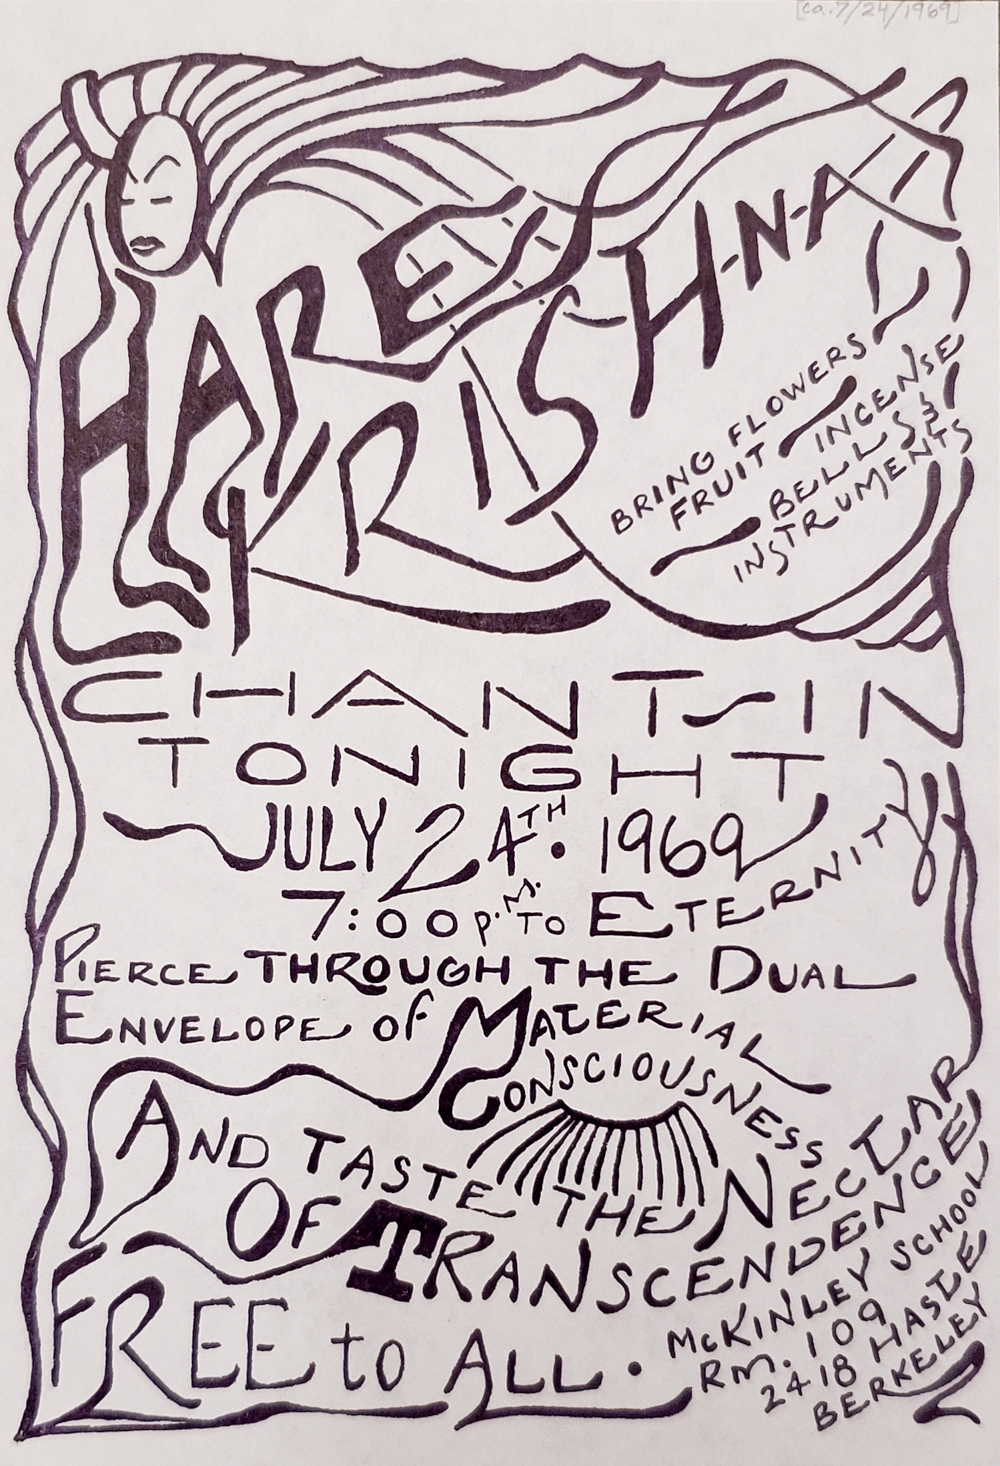 [ca. 7/24/1969]
HARE
KRISHNA
BRING FLOWERS
FRUIT INCENSE
BELLS &
INSTRUMENTS
CHANT-IN
TONIGHT
JULY 24TH • 1969
7:00 P.M. TO ETERNITY
PIERCE THROUGH THE DUAL
ENVELOPE OF MATERIAL
CONSCIOUSNESS
AND TASTE THE NECTAR
OF TRANSCENDENCE
FREE to ALL •
McKINLEY SCHOOL
RM. 109
2418 HASTE
BERKELEY